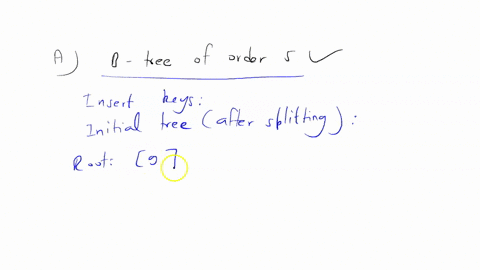 A) B-tree of order 5 ✓
Insert keys:
Initial tree (after splitting):
Root: [9]